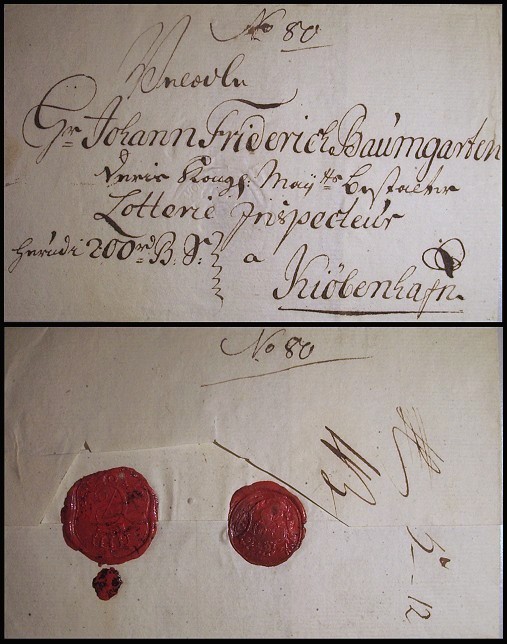 No 80
Velædle
Hr Johann Friderich Baumgarten
Deris Kongl: May:tts bestalter
Lotterie Inspecteur
herudi 200 rd B: S:
a
Kiöbenhafn
No 80